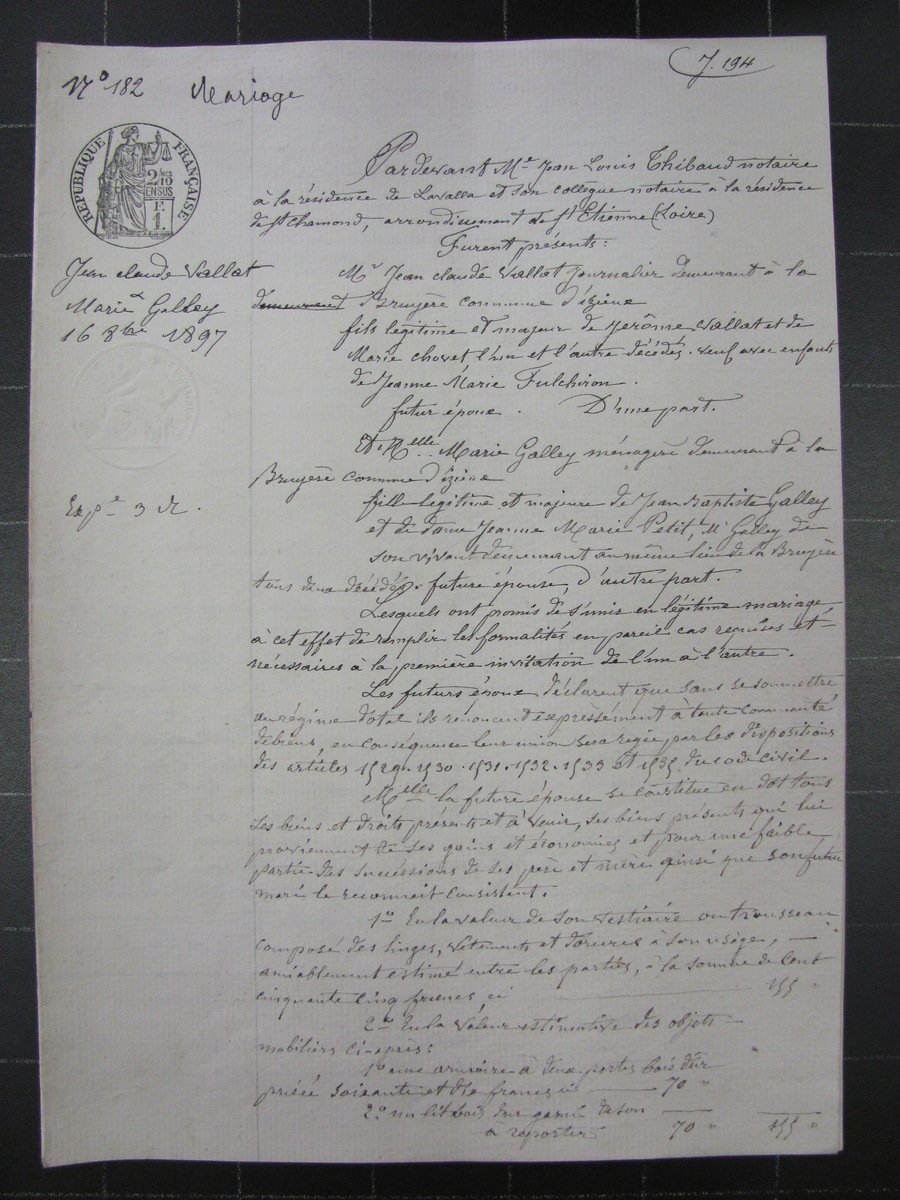 J. 194
N° 182 Mariage
RÉPUBLIQUE FRANÇAISE
Jean claude Vallat
Marie Galley
16 8bre 1897
Expe 3 R.
Pardevant Me Jean Louis Thibaud notaire
à la résidence de Lavalla et son collègue notaire à la résidence
de St Chamond, arrondissement de St Etienne (Loire)
Furent présents:
Mr Jean claude Vallat journalier demeurant à la
demeurant Bruyère commune d'izieux
fils légitime et majeur de Jerôme Vallat et de
Marie chovet l'un et l'autre décédés. veuf avec enfants
de Jeanne Marie Fulchiron.
futur époux. D'une part.
Et Melle Marie Galley ménagère demeurant à la
Bruyère commune d'izieux
fille légitime et majeure de Jean Baptiste Galley
et de dame Jeanne Marie Petit, Mr Galley de
son vivant demeurant au même lieu de la Bruyère
tous deux décédés. future épouse, d'autre part.
Lesquels ont promis de s'unir en légitime mariage
à cet effet de remplir les formalités en pareil cas requises et
nécessaires à la première invitation de l'un à l'autre.
Les futurs époux déclarent que sans se soumettre
au régime dotal ils renoncent expressément à toute communauté
de biens, en conséquence leur union sera régie par les dispositions
des articles 1529. 1530. 1531. 1532. 1533 et 1535 du code civil.
Melle la future épouse se constitue en dot tous
ses biens et droits présents et à venir, ses biens présents qui lui
proviennent de ses gains et économies et pour une faible
partie des successions de ses père et mère ainsi que son futur
mari le reconnait consistent.
1° En la valeur de son vestiaire ou trousseau
composé des linges, vêtements et dorures à son usage,
amiablement estimé entre les parties, à la somme de Cent
cinquante cinq francs, ci 155 "
2° En la valeur estimative des objets
mobiliers ci-après:
1° une armoire à deux portes bois dur
prisée soixante et dix francs ci 70 "
2° un lit bois dur garni de son
à reporter 70 " 155 "